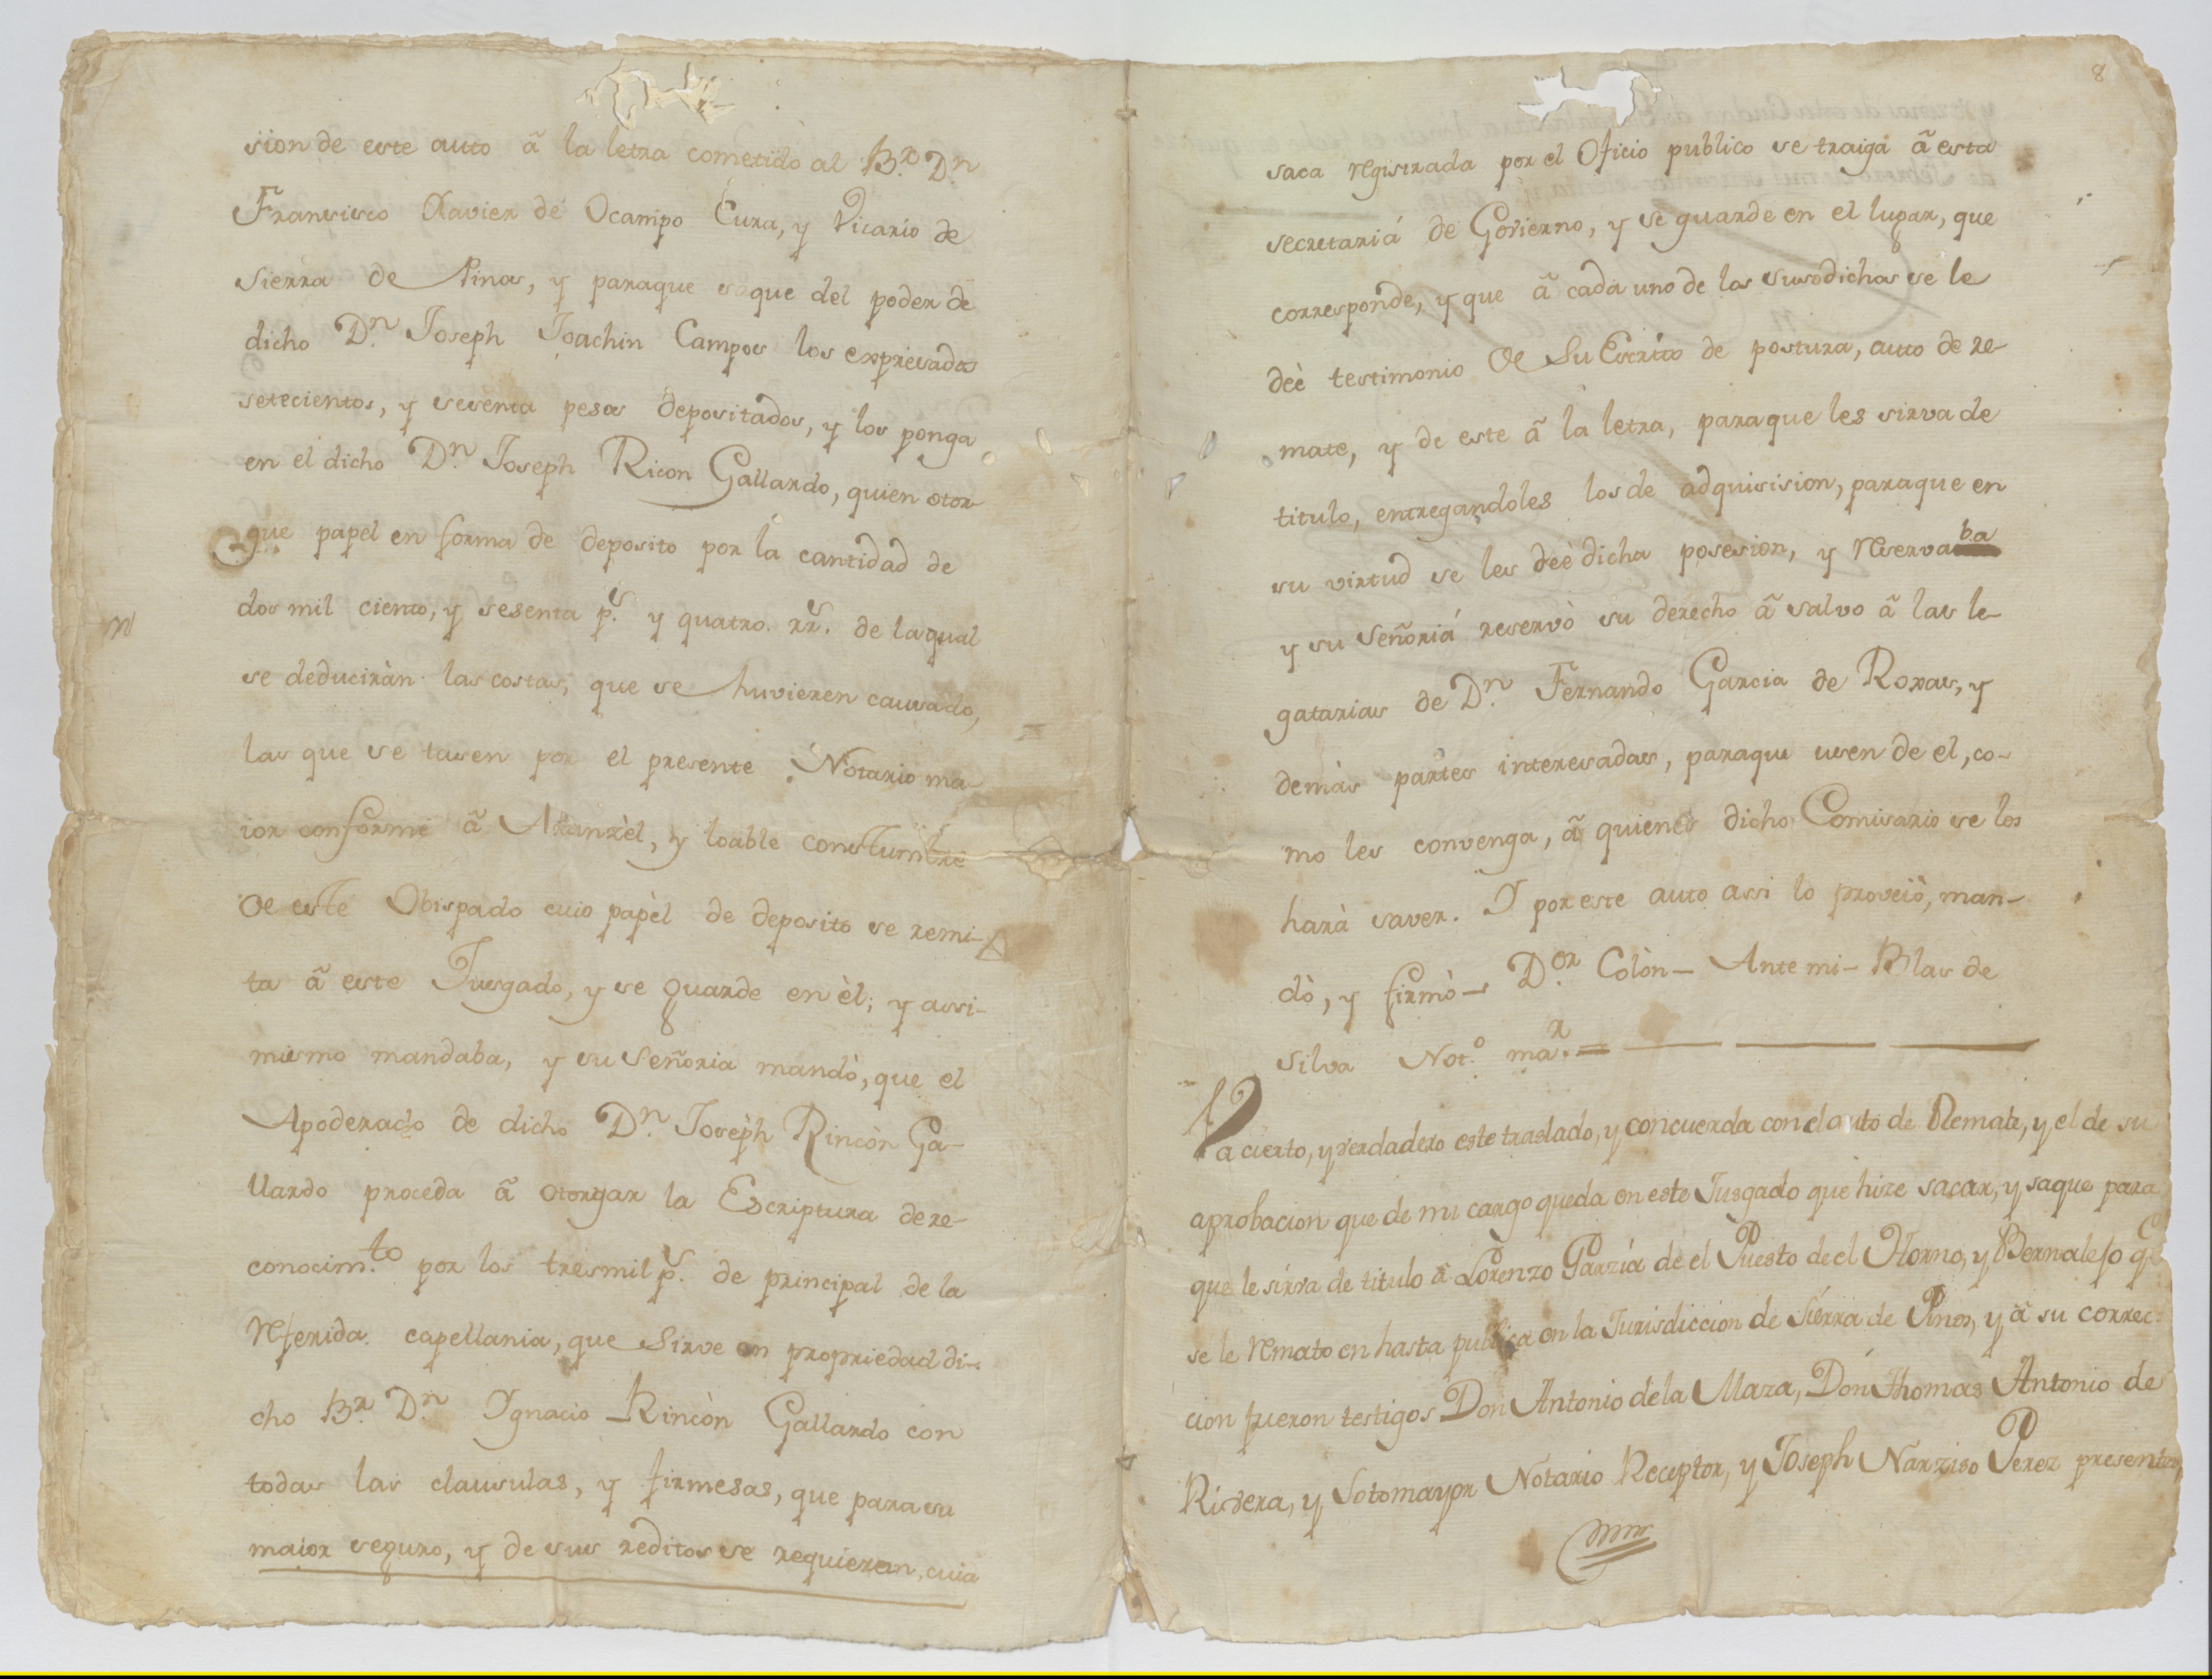 sion de este auto â la letra cometido al B.r D.n
Francisco Xavier de Ocampo Cura, y Vicario de
Sierra de Pinos, y paraque saque del poder de
dicho D.n Joseph Joachin Campos los expresados
setecientos, y sesenta pesos depositados, y los ponga
en el dicho D.n Joseph Ricon Gallardo, quien otor
gue papel en forma de deposito por la cantidad de
dos mil ciento, y sesenta p.s y quatro rr.s de la qual
se deduciràn las costas, que se huvieren causado,
las que se tasen por el presente Notario ma
ior conforme â Aranzèl, y loable constumbre
de este Obispado cuio papèl de deposito se remi-
ta â este Jusgado, y se guarde en èl; y assi-
mismo mandaba, y su Señoria mandò, que el
Apoderado de dicho D.n Josèph Rincòn Ga-
llardo proceda â otorgar la Escriptura de re-
conocim.to por los tresmil p.s de principal de la
referida capellania, que sirve en propriedad di-
cho B.r D.n Ygnacio Rincòn Gallardo con
todas las clausulas, y firmesas, que para su
maior seguro, y de sus reditos se requieran, cuia
8
saca registrada por el Oficio publico se traiga â esta
secretariá de Govierno, y se guarde en el lugar, que
corresponde, y que â cada uno de los susodichos se le
deè testimonio de su Escrito de postura, auto de re-
mate, y de este â la letra, paraque les sirva de
titulo, entregandoles los de adquisision, paraque en
su virtud se les deè dicha posesion, y reservaba
y su Señoriá reservò su derecho â salvo â las le-
gatarias de D.n Fernando Garcia de Roxas, y
demàs partes interesadas, paraque usen de el, co-
mo les convenga, â quienes dicho Comisario se los
harà saver. Y por este auto assi lo proveiò, man-
dò, y firmò - D.or Colòn - Ante mi - Blas de
Silva Not.o ma.r =
Va cierto, y verdadero este traslado, y concuerda con el auto de Remate, y el de su
aprobacion que de mi cargo queda en este Jusgado que hize sacar, y saque para
que le sirva de titulo â Lorenzo Garzía de el Puesto de el Horno, y Bernalejo q.e
se le remato en hasta publica en la Jurisdiccion de Sierra de Pinos, y â su correc-
cion fueron testigos Don Antonio de la Maza, Don Thomas Antonio de
Rivera, y Sotomayor Notario Receptor, y Joseph Narziso Perez presentes